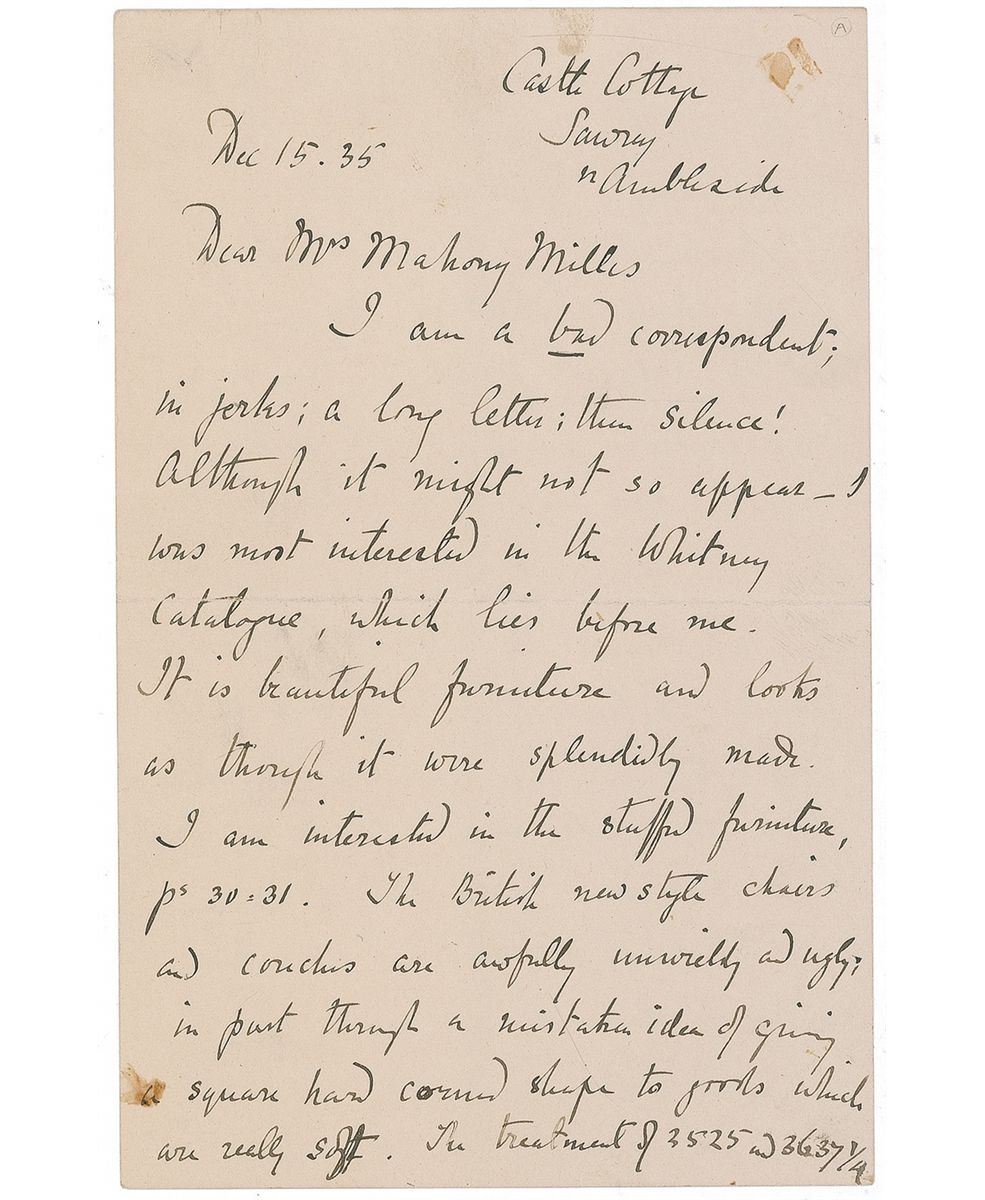 A
Castle Cottage
Sawrey
nr Ambleside
Dec 15. 35
Dear Mrs Mahony Miller
I am a bad correspondent;
in jerks; a long letter; then silence!
Although it might not so appear – I
was most interested in the Whitney
Catalogue, which lies before me.
It is beautiful furniture and looks
as though it were splendidly made.
I am interested in the stuffed furniture,
ps 30=31. The British new style chairs
and couches are awfully unwieldy and ugly;
in part through a mistaken idea of giving
a square hard corned shape to goods which
are really soft. The treatment of 2525 and 3637 1/4